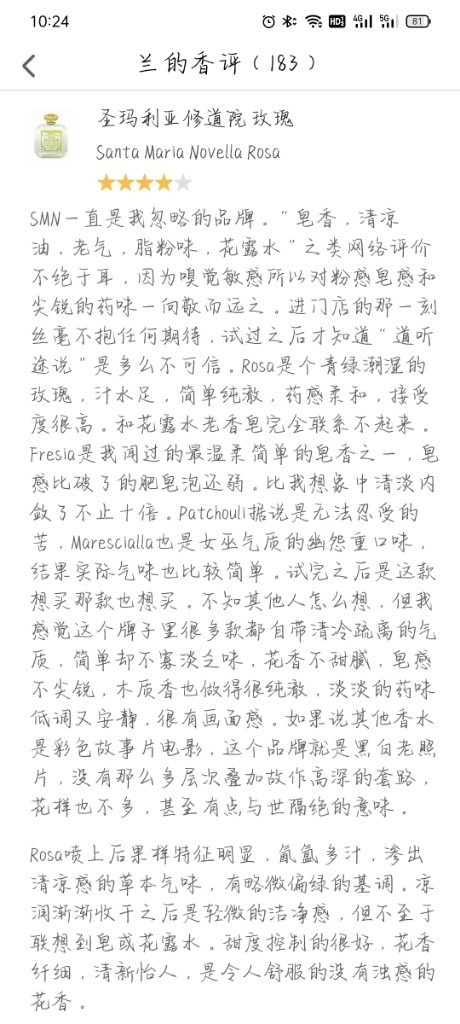 10:24
HD 4G 5G 81
兰的香评（183）
圣玛利亚修道院 玫瑰
Santa Maria Novella Rosa
SMN一直是我忽略的品牌。"皂香，清凉
油，老气，脂粉味，花露水"之类网络评价
不绝于耳，因为嗅觉敏感所以对粉感皂感和
尖锐的药味一向敬而远之。进门店的那一刻
丝毫不抱任何期待，试过之后才知道"道听
途说"是多么不可信。Rosa是个青绿潮湿的
玫瑰，汁水足，简单纯澈，药感柔和，接受
度很高。和花露水老香皂完全联系不起来。
Fresia是我闻过的最温柔简单的皂香之一，皂
感比破了的肥皂泡还弱。比我想象中清淡内
敛了不止十倍。Patchouli据说是无法忍受的
苦，Marescialla也是女巫气质的幽怨重口味，
结果实际气味也比较简单。试完之后是这款
想买那款也想买。不知其他人怎么想，但我
感觉这个牌子里很多款都自带清冷疏离的气
质，简单却不寡淡乏味，花香不甜腻，皂感
不尖锐，木质香也做得很纯澈，淡淡的药味
低调又安静，很有画面感。如果说其他香水
是彩色故事片电影，这个品牌就是黑白老照
片，没有那么多层次叠加故作高深的套路，
花样也不多，甚至有点与世隔绝的意味。
Rosa喷上后果样特征明显，氤氲多汁，渗出
清凉感的草本气味，有略微偏绿的基调。凉
润渐渐收干之后是轻微的洁净感，但不至于
联想到皂或花露水。甜度控制的很好，花香
纤细，清新怡人，是令人舒服的没有浊感的
花香。